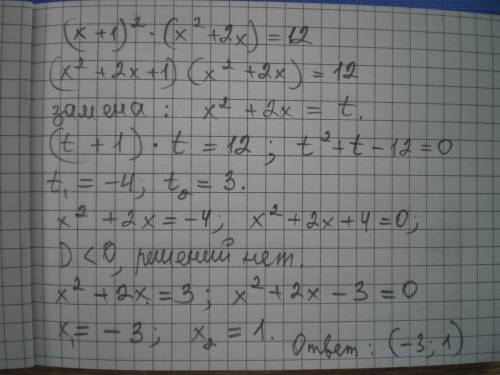 (x+1)² · (x²+2x) = 12
(x²+2x+1) (x²+2x) = 12
замена: x² + 2x = t.
(t + 1) · t = 12; t²+t-12=0
t₁ = -4; t₂ = 3.
x² + 2x = -4; x²+2x+4=0;
D < 0, решений нет.
x² + 2x = 3; x²+2x-3=0
x₁ = -3; x₂ = 1. Ответ: (-3; 1)